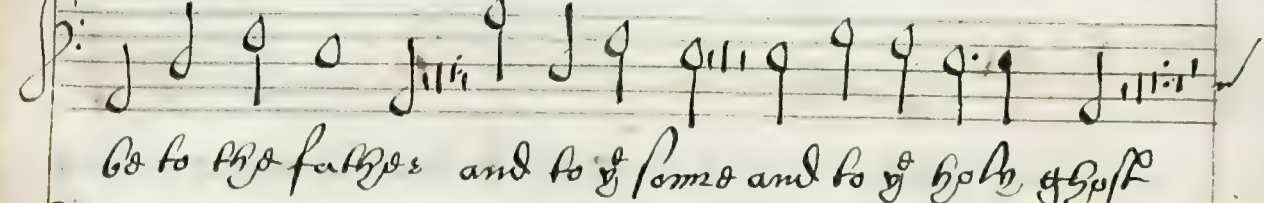 be to the father and to yᵉ sonne and to yᵉ holy ghost